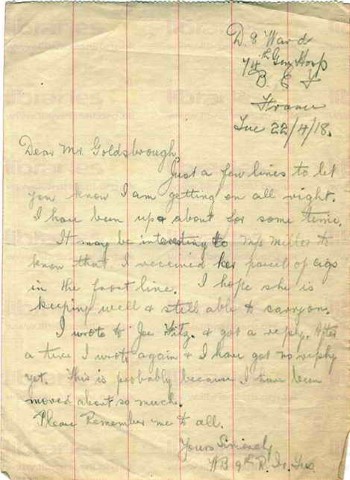 D 8 Ward
7th Gen Hosp
B. E. F
France
Tue 22/4/18.
Dear Mr. Goldsbrough,
Just a few lines to let
you know I am getting on all right.
I have been up & about for some time.
It may be interesting to Mrs to
know that I received her parcel of cigs
in the front line. I hope she is
keeping well & still able to carry on.
I wrote to Joe & got a reply. After
a time I wrote again & I have got no reply
yet. This is probably because I have been
moved about so much.
Please Remember me to all.
Yours Sincerely
9th R. Ir. Fus